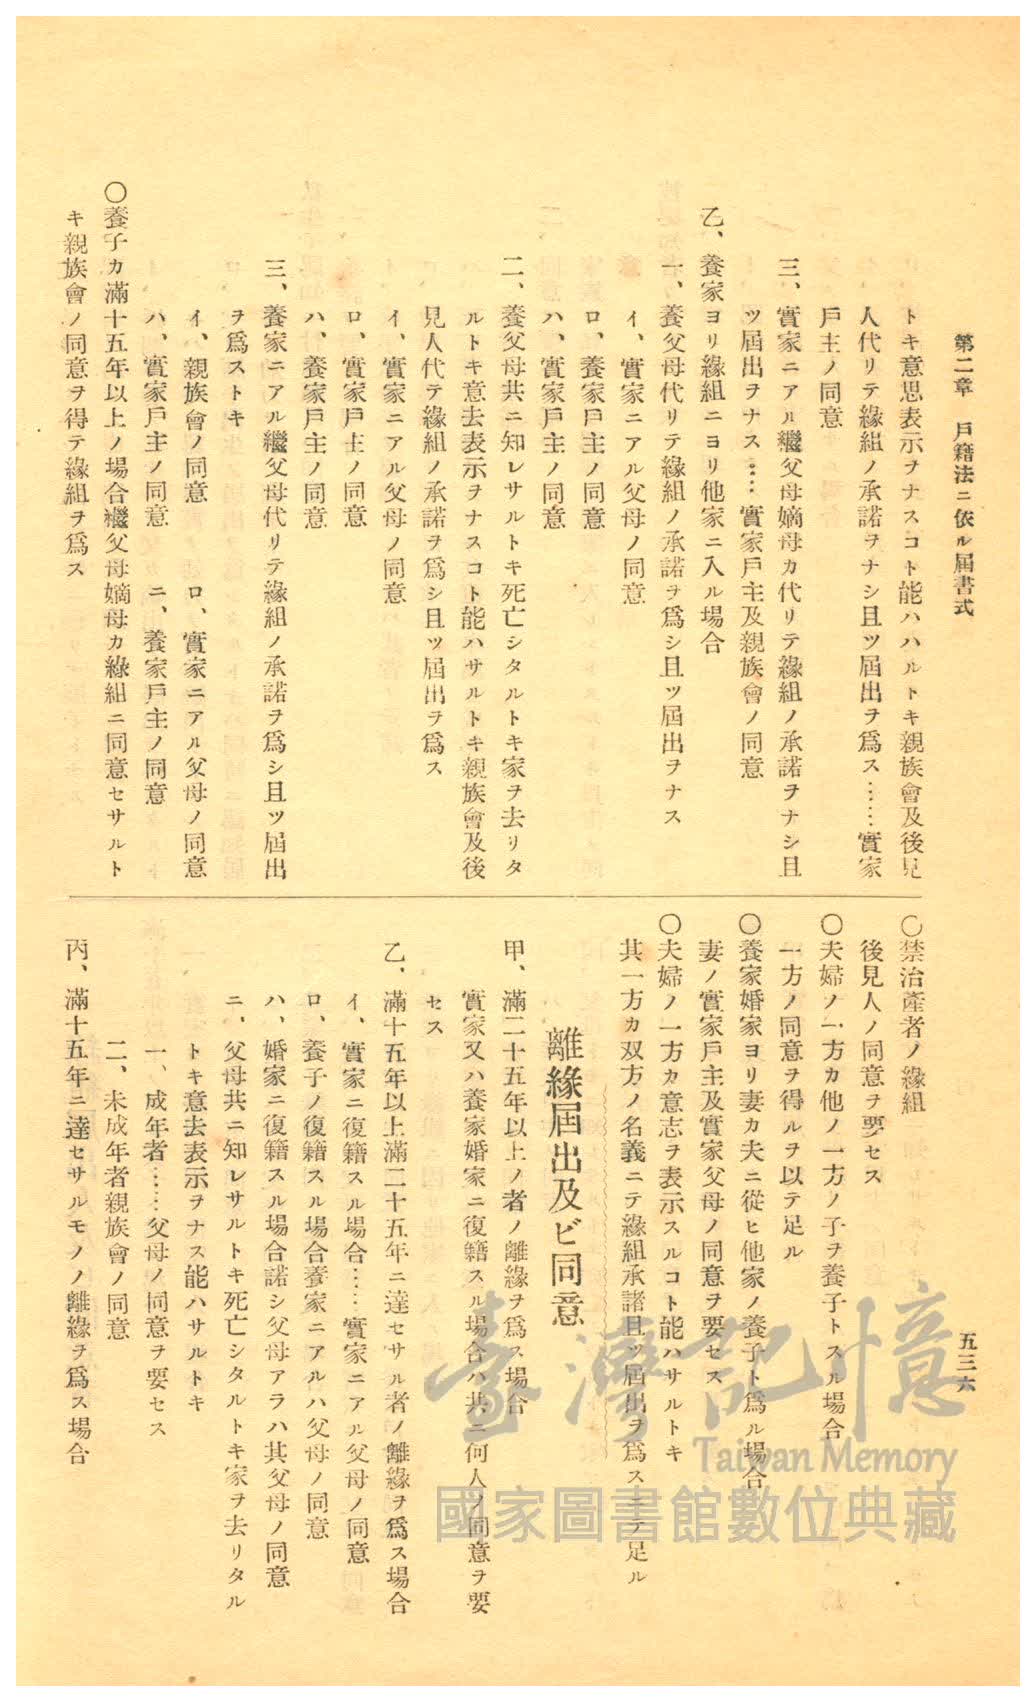 第二章　戶籍法ニ依ル屆書式
五三六
トキ意思表示ヲナスコト能ハハルトキ親族會及後見
人代リテ緣組ノ承諾ヲナシ且ツ屆出ヲ爲ス……實家
戶主ノ同意
三、實家ニアル繼父母嫡母カ代リテ緣組ノ承諾ヲナシ且
ツ屆出ヲナス…實家戶主及親族會ノ同意
乙、養家ヨリ緣組ニヨリ他家ニ入ル場合
一、養父母代リテ緣組ノ承諾ヲ爲シ且ツ屆出ヲナス
イ、實家ニアル父母ノ同意
ロ、養家戶主ノ同意
ハ、實家戶主ノ同意
二、養父母共ニ知レサルトキ死亡シタルトキ家ヲ去リタ
ルトキ意去表示ヲナスコト能ハサルトキ親族會及後
見人代テ緣組ノ承諾ヲ爲シ且ツ屆出ヲ爲ス
イ、實家ニアル父母ノ同意
ロ、實家戶主ノ同意
ハ、養家戶主ノ同意
三、養家ニアル繼父母代リテ緣組ノ承諾ヲ爲シ且ツ屆出
ヲ爲ストキ
イ、親族會ノ同意　ロ、實家ニアル父母ノ同意
ハ、實家戶主ノ同意　ニ、養家戶主ノ同意
○養子カ滿十五年以上ノ場合繼父母嫡母カ緣組ニ同意セサルト
キ親族會ノ同意ヲ得テ緣組ヲ爲ス
○禁治產者ノ緣組
後見人ノ同意ヲ要セス
○夫婦ノ一方カ他ノ一方ノ子ヲ養子トスル場合
一方ノ同意ヲ得ルヲ以テ足ル
○養家婚家ヨリ妻カ夫ニ從ヒ他家ノ養子ト爲ル場合
妻ノ實家戶主及實家父母ノ同意ヲ要セス
○夫婦ノ一方カ意志ヲ表示スルコト能ハサルトキ
其一方カ双方ノ名義ニテ緣組承諸且ツ屆出ヲ爲スニテ足ル
離緣屆出及ビ同意
甲、滿二十五年以上ノ者ノ離緣ヲ爲ス場合
實家又ハ養家婚家ニ復籍スル場合ハ共ニ何人ノ同意ヲ要
セス
乙、滿十五年以上滿二十五年ニ達セサル者ノ離緣ヲ爲ス場合
イ、實家ニ復籍スル場合……實家ニアル父母ノ同意
ロ、養子ノ復籍スル場合養家ニアルハ父母ノ同意
ハ、婚家ニ復籍スル場合諾シ父母アラハ其父母ノ同意
ニ、父母共ニ知レサルトキ死亡シタルトキ家ヲ去リタル
トキ意去表示ヲナス能ハサルトキ
一、成年者……父母ノ同意ヲ要セス
二、未成年者親族會ノ同意
丙、滿十五年ニ達セサルモノノ離緣ヲ爲ス場合
臺灣記憶
Taiwan Memory
國家圖書館數位典藏